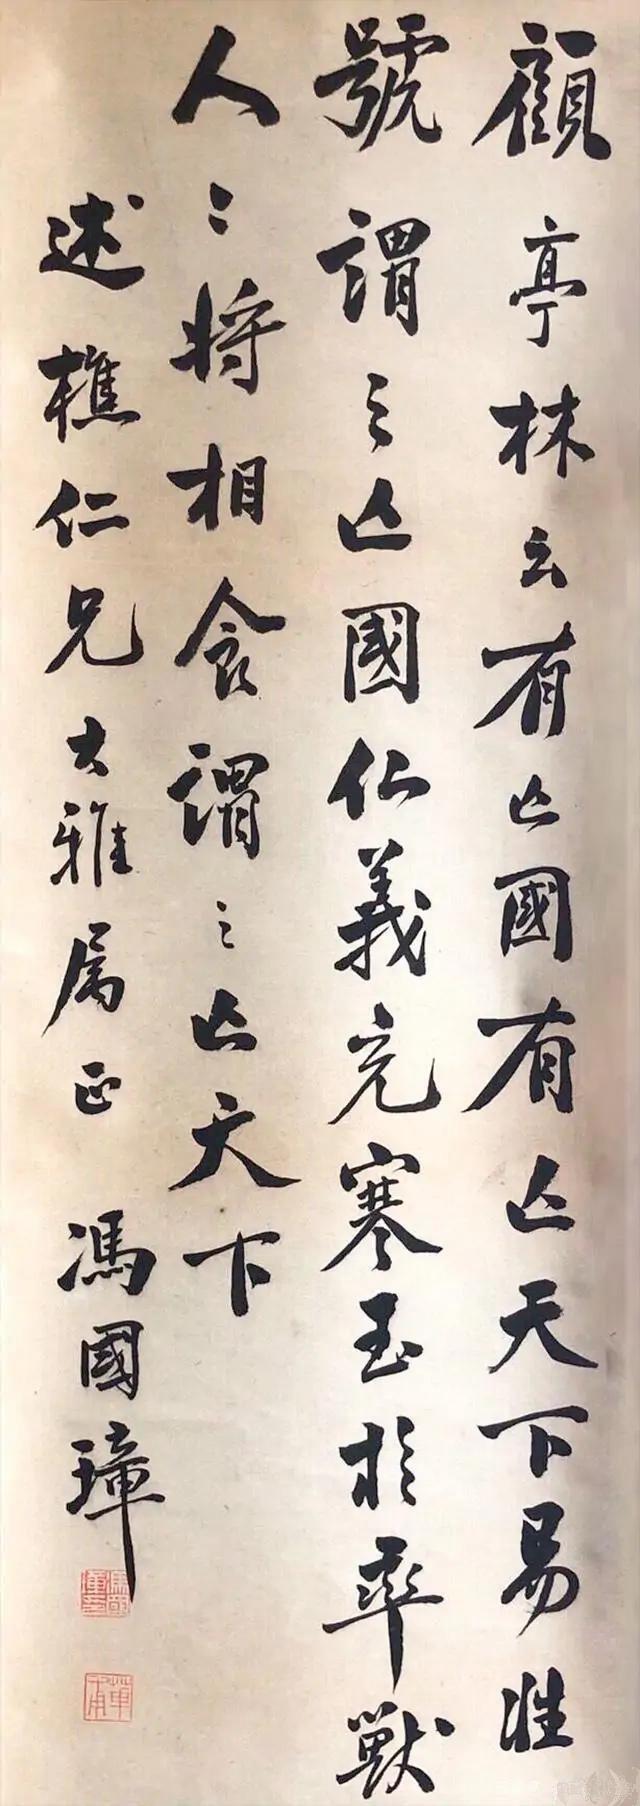 顧亭林云有亡國有亡天下易姓
號謂之亡國仁義充塞至於率獸
人〻將相食謂之亡天下
述樵仁兄大雅属正 馮國璋
馮國璋印
華甫